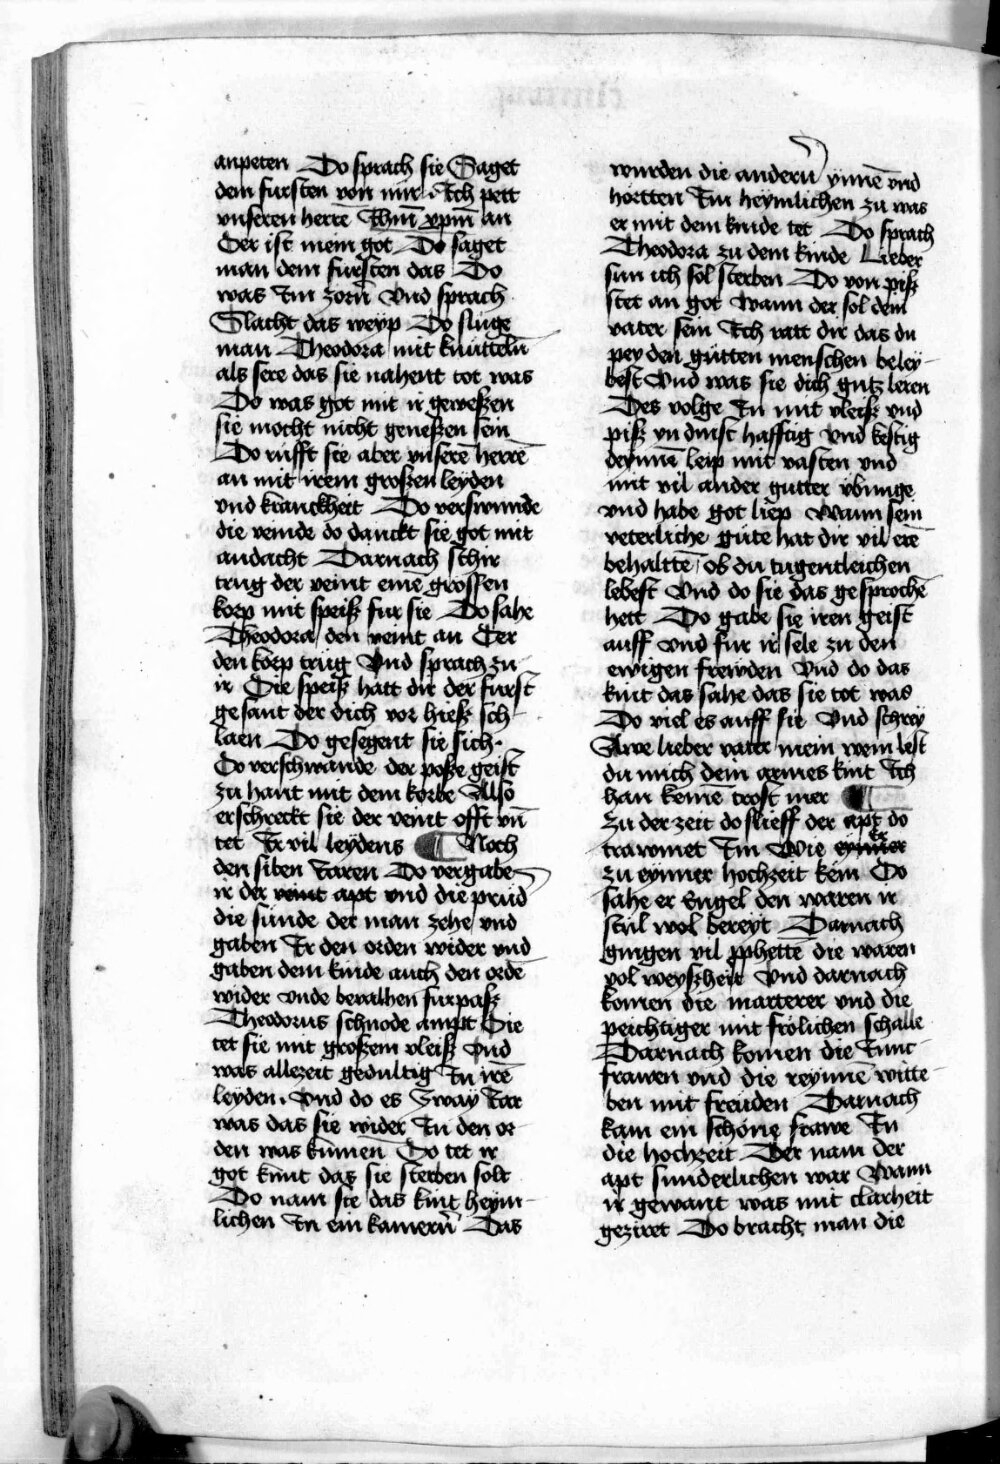 anpeten Do sprach sie Saget
dem fursten von mir Ich pett
vnseren herrē Ihm̄ xp̄m an
Der ist mein got Do saget
man dem fursten das Do
was Im zorn̄ Vnd sprach
Slacht das weyp Do sluge
man Theodora mit knutteln̄
als sere das sie nahent tot was
Do was got mit ir geweßen
sie mocht nicht geneßen sein
Do rufft sie aber vnserē herrē
an mit irem großen leyden
vnd kranckheit Do verswunde
die veinde do danckt sie got mit
andacht Darnach schir
trug der veint einē grossen
korp mit speiß fur sie Do sahe
Theodora den veint an Der
den korp trug Vnd sprach zu
ir Die speiß hatt dir der furst
gesant der dich vor hieß sch-
laen Do gesegent sie sich
Do verschwande der poße geist
zu hant mit dem korbe Also
erschreckt sie der veint offt vn̄
tet Ir vil leydens ¶ Noch
den siben Iaren Do vergabe
ir der veint apt vnd die prud̄
die sunde der man zehe vnd
gaben Ir den orden wider vnd
gaben dem kinde auch den ordē
wider vnde bevalhen furpaß
Theodorus schnode ampt Die
tet sie mit großem vleiß Vnd
was allezeit gedultig In irē
leyden Vnd do es Zway Iar
was das sie wider In den or-
den was kumen̄ Do tet ir
got kunt das sie sterben solt
Do nam sie das kint heym-
lichen In ein kamern̄ Das
wurden die andern̄ ynnē vnd
hortten Im heymlichen zu was
er mit dem kinde tet Do sprach
Theodora zu dem kinde Lieber
sun ich sol sterben Do von piß
stet an got Wann der sol dein
vater sein Ich ratt dir das du
pey den gutten menschen beley-
best Vnd was sie dich gutz leren
Des volge In mit vleiß vnd
piß yn dinst hafftig Vnd kestig
deynnē leip mit vasten vnd
mit vil ander gutter vbunge
Vnd habe got liep Wann sein
veterliche gute hat dir vil erē
behalttē ob du tugentleichen
lebest Vnd do sie das gesprochē
hett Do gabe sie iren geist
auff Vnd fur ir sele zu den
ewigen frewden Vnd do das
kint das sahe das sie tot was
Do viel es auff sie Vnd schrey
Awe lieber vater mein wem lest
du mich dein armes kint Ich
han keinē trost mer ¶
Zu der zeit do slieff der apt do
trawmet Im Wie eynner er
zu eynner hochzeit kem Do
sahe er Engel den waren ir
stul wol bereyt Darnach
gingen vil pphettē die waren
vol weyßheit Vnd darnach
komen die marterer vnd die
peichtiger mit frolichen schalle
Darnach komen die Iunc-
frawen vnd die reynnē witte-
ben mit freuden Darnach
kam ein schone frawe In
die hochzeit Der nam der
apt sunderlichen war Wann
ir gewant was mit clarheit
geziret Do bracht man die